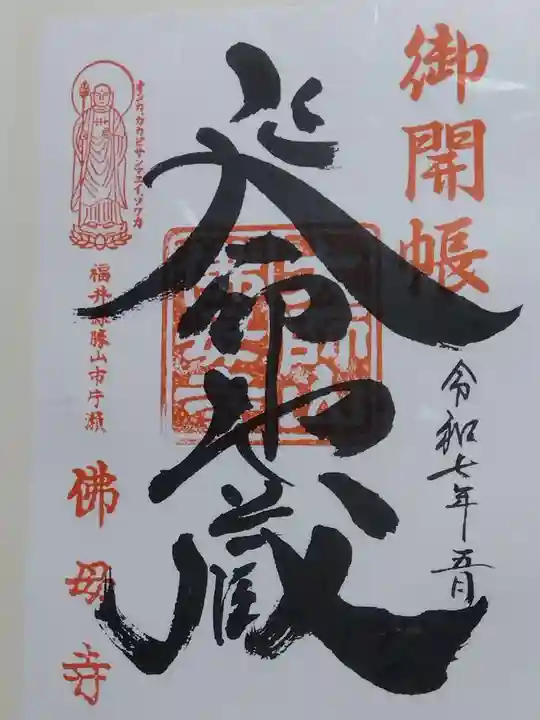 御開帳
令和七年 五月
延命地蔵
オンカカカビサンマエイソワカ
福井県勝山市片瀬
佛母寺